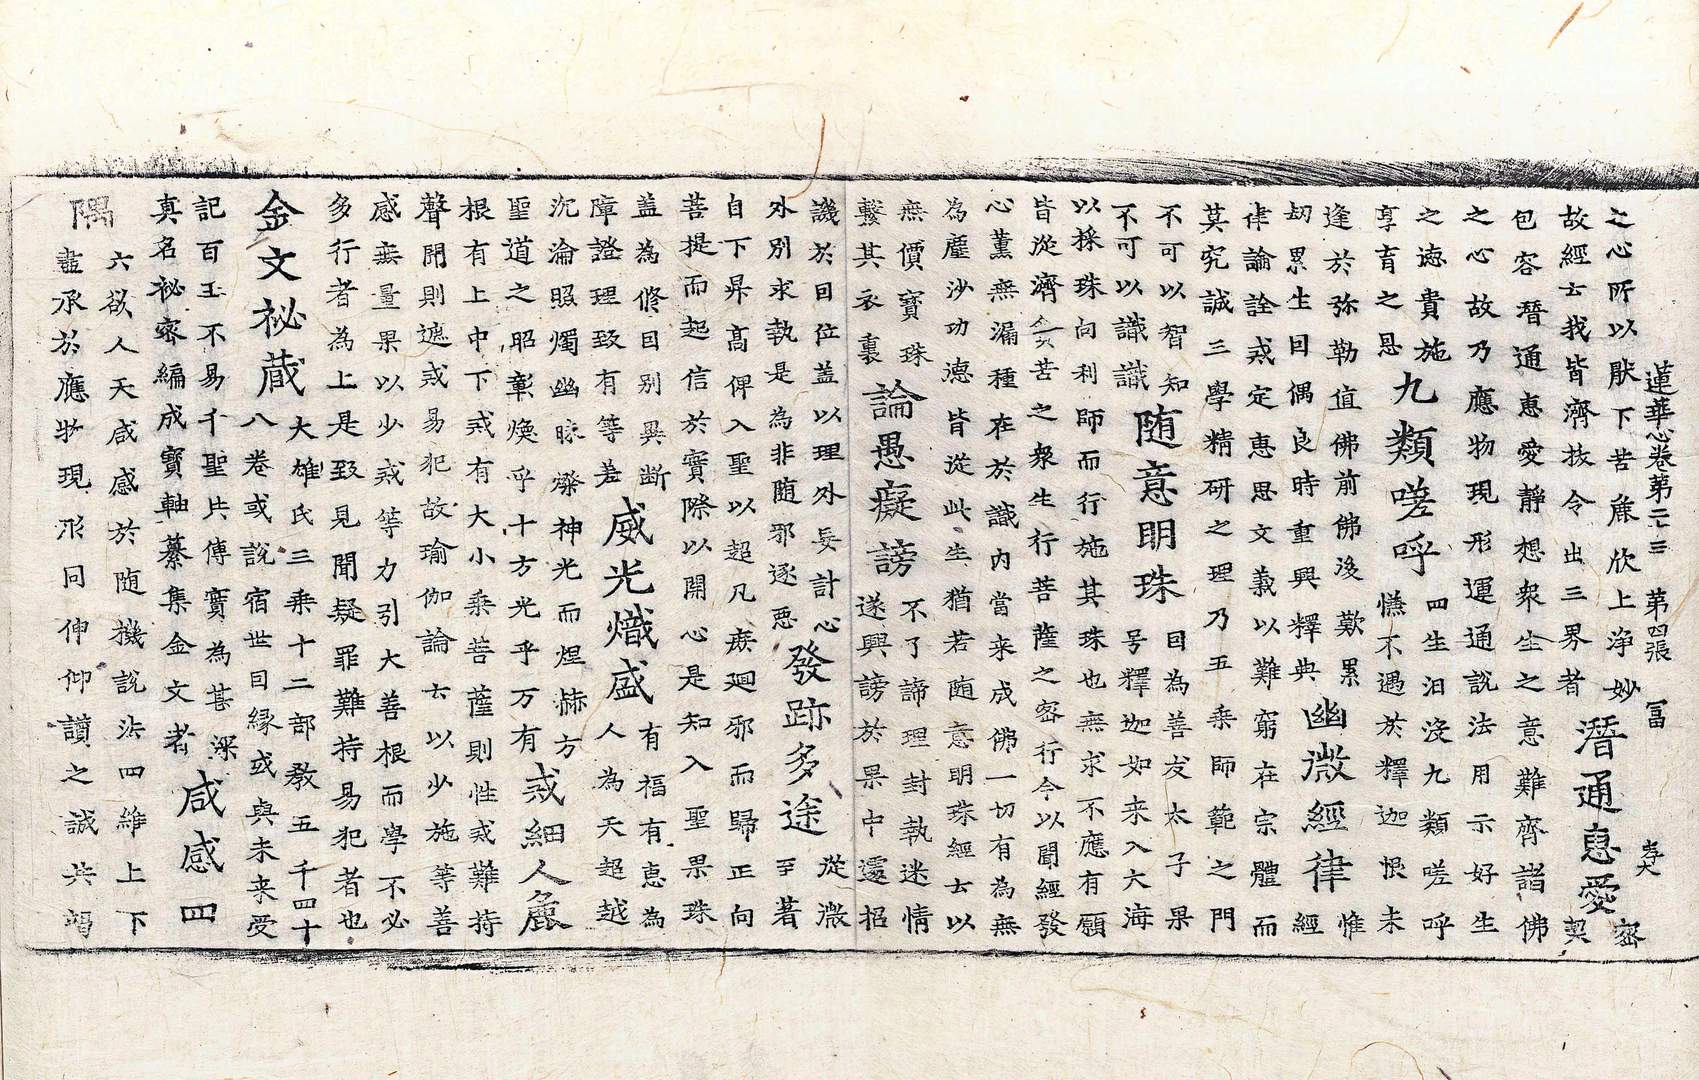 蓮華心卷第二十三 第四張 冨 孝大
之心所以猒下苦麁欣上淨妙
故經云我皆濟拔令出三界者
潛通惠愛
密
契
包容潛通惠愛靜想衆生之意難齊諸佛
之心故乃應物現形運通說法用示好生
之德貴施
享育之恩
九類嗟呼
四生汩沒九類嗟呼
憾不遇於釋迦恨未
逢於弥勒值佛前佛後歎累
劫累生因偶良時重興釋典
幽微經律
惟
經
律論詮戒定惠思文義以難窮在宗體而
莫究誠三學精研之理乃五乘師範之門
不可以智知
不可以識識
随意明珠
因為善友太子果
号釋迦如来入大海
以採珠向利師而行施其珠也無求不應有願
皆從濟一切苦之衆生行菩薩之密行今以聞經發
心薰無漏種在於識內當来成佛一切有為無
為塵沙功德皆從此生猶若随意明珠經云以
無價寶珠
繫其衣裏
論愚癡謗
不了諦理封執迷情
遂興謗於果中還招
譏於因位蓋以理外妄計心
外別求執是為非随邪逐惡
發跡多途
從微
至著
自下昇高俾入聖以超凡庶廻邪而歸正向
菩提而起信於實際以開心是知入聖果珠
蓋為修因別異斷
障證理致有等差
威光熾盛
有福有惠為
人為天超越
沉淪照燭幽昧燦神光而煜赫方
聖道之昭彰煥乎十方光乎万有
或細人麁
根有上中下或有大小乘菩薩則性戒難持
聲聞則遮戒易犯故瑜伽論云以少施等善
感無量果以少戒等力引大善根而學不必
多行者為上是致見聞疑罪難持易犯者也
金文祕蔵
大雄氏三乘十二部教五千四十
八卷或說宿世因緣或與未来受
記百王不易千聖共傳實為甚深
真名祕密編成寶軸纂集金文者
咸感四
隅
六欲人天咸感於随機說法四維上下
盡承於應物現形同伸仰讃之誠共竭